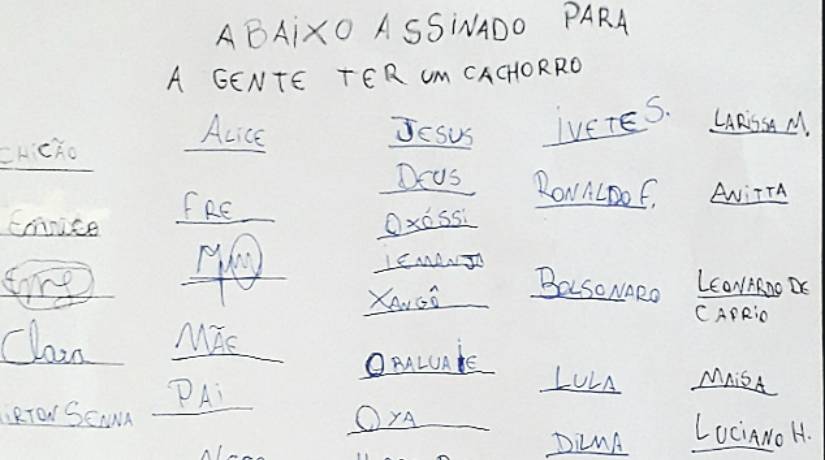 ABAIXO ASSINADO PARA
A GENTE TER UM CACHORRO
CHICÃO
Clara
AIRTON SENNA
ALICE
FRE
MÃE
PAI
JESUS
DEUS
OXÓSSI
IEMANJÁ
XANGÔ
OBALUAIE
OYA
IVETE S.
RONALDO F.
BOLSONARO
LULA
DILMA
LARISSA M.
ANITTA
LEONARDO DE
CAPRIO
MAISA
LUCIANO H.